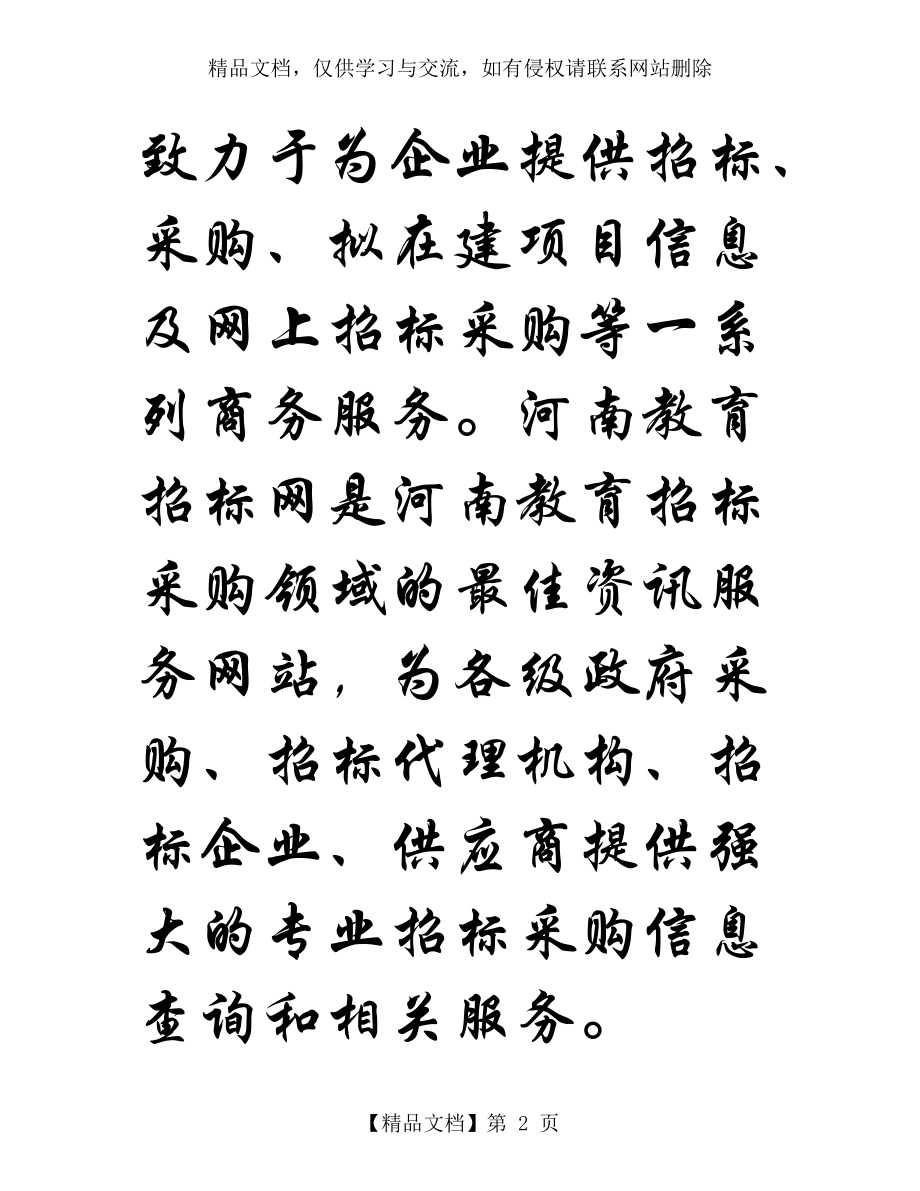 精品文档，仅供学习与交流，如有侵权请联系网站删除
致力于为企业提供招标、
采购、拟在建项目信息
及网上招标采购等一系
列商务服务。河南教育
招标网是河南教育招标
采购领域的最佳资讯服
务网站，为各级政府采
购、招标代理机构、招
标企业、供应商提供强
大的专业招标采购信息
查询和相关服务。
【精品文档】第 2 页